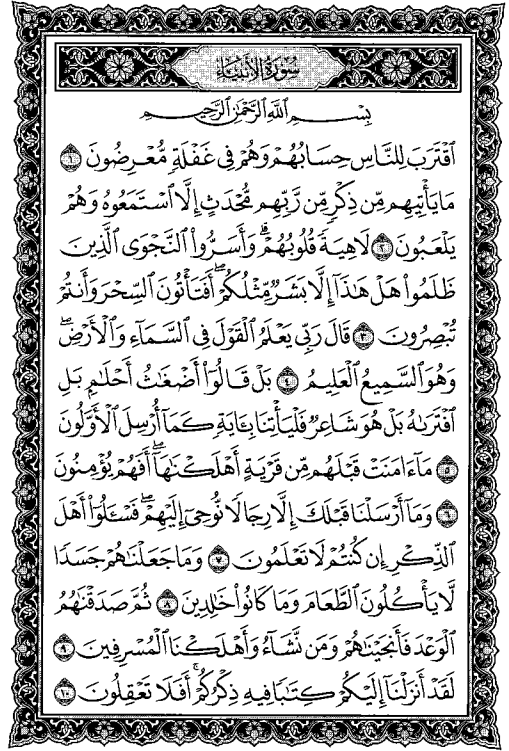 سُورَةُ الأَنبيَاء
بِسْمِ اللَّهِ الرَّحْمَٰنِ الرَّحِيمِ
ٱقْتَرَبَ لِلنَّاسِ حِسَابُهُمْ وَهُمْ فِى غَفْلَةٍ مُّعْرِضُونَ ١
مَا يَأْتِيهِم مِّن ذِكْرٍ مِّن رَّبِّهِم مُّحْدَثٍ إِلَّا ٱسْتَمَعُوهُ وَهُمْ
يَلْعَبُونَ ٢ لَاهِيَةً قُلُوبُهُمْ ۗ وَأَسَرُّوا۟ ٱلنَّجْوَى ٱلَّذِينَ
ظَلَمُوا۟ هَلْ هَٰذَآ إِلَّا بَشَرٌ مِّثْلُكُمْ ۖ أَفَتَأْتُونَ ٱلسِّحْرَ وَأَنتُمْ
تُبْصِرُونَ ٣ قَالَ رَبِّى يَعْلَمُ ٱلْقَوْلَ فِى ٱلسَّمَآءِ وَٱلْأَرْضِ ۖ
وَهُوَ ٱلسَّمِيعُ ٱلْعَلِيمُ ٤ بَلْ قَالُوٓا۟ أَضْغَٰثُ أَحْلَٰمٍ بَلِ
ٱفْتَرَىٰهُ بَلْ هُوَ شَاعِرٌ فَلْيَأْتِنَا بِـَٔايَةٍ كَمَآ أُرْسِلَ ٱلْأَوَّلُونَ
٥ مَآ ءَامَنَتْ قَبْلَهُم مِّن قَرْيَةٍ أَهْلَكْنَٰهَآ ۖ أَفَهُمْ يُؤْمِنُونَ
٦ وَمَآ أَرْسَلْنَا قَبْلَكَ إِلَّا رِجَالًا نُّوحِىٓ إِلَيْهِمْ ۖ فَسْـَٔلُوٓا۟ أَهْلَ
ٱلذِّكْرِ إِن كُنتُمْ لَا تَعْلَمُونَ ٧ وَمَا جَعَلْنَٰهُمْ جَسَدًا
لَّا يَأْكُلُونَ ٱلطَّعَامَ وَمَا كَانُوا۟ خَٰلِدِينَ ٨ ثُمَّ صَدَقْنَٰهُمُ
ٱلْوَعْدَ فَأَنجَيْنَٰهُمْ وَمَن نَّشَآءُ وَأَهْلَكْنَا ٱلْمُسْرِفِينَ ٩
لَقَدْ أَنزَلْنَآ إِلَيْكُمْ كِتَٰبًا فِيهِ ذِكْرُكُمْ ۖ أَفَلَا تَعْقِلُونَ ١٠